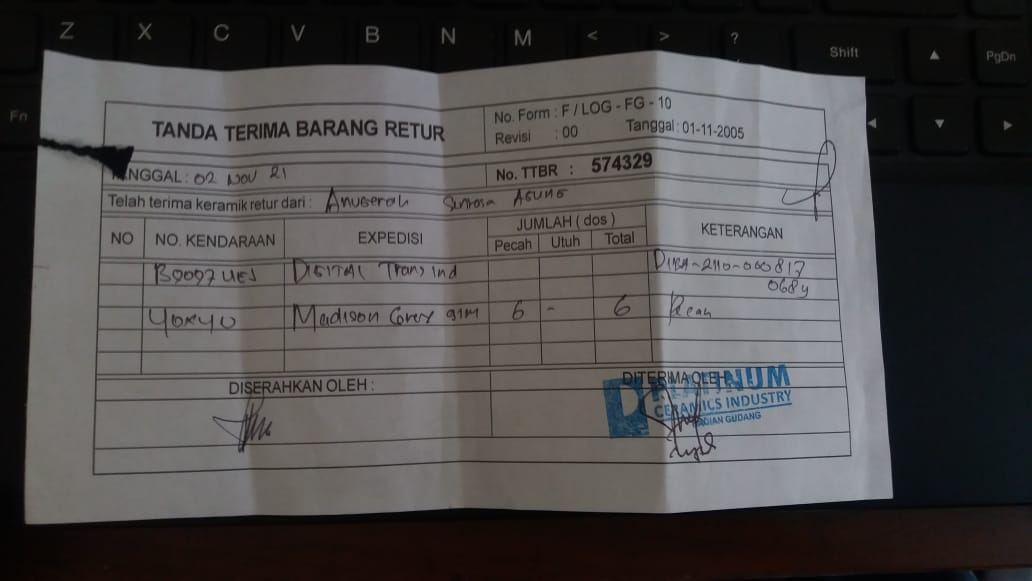 Z X C V B N M < > ?
Shift ▲ PgDn
Fn ◄ ▼ ►
TANDA TERIMA BARANG RETUR
No. Form : F / LOG - FG - 10
Revisi : 00 Tanggal : 01-11-2005
TANGGAL : 02 NOV 21
No. TTBR : 574329
Telah terima keramik retur dari : Anugerah Sentosa AGUNG
NO NO. KENDARAAN EXPEDISI JUMLAH ( dos ) KETERANGAN
Pecah Utuh Total
DIGITAL Trans Ind
40x40 Madison Grey 6 - 6
DISERAHKAN OLEH : DITERIMA OLEH
PLATINUM
CERAMICS INDUSTRY
BAGIAN GUDANG